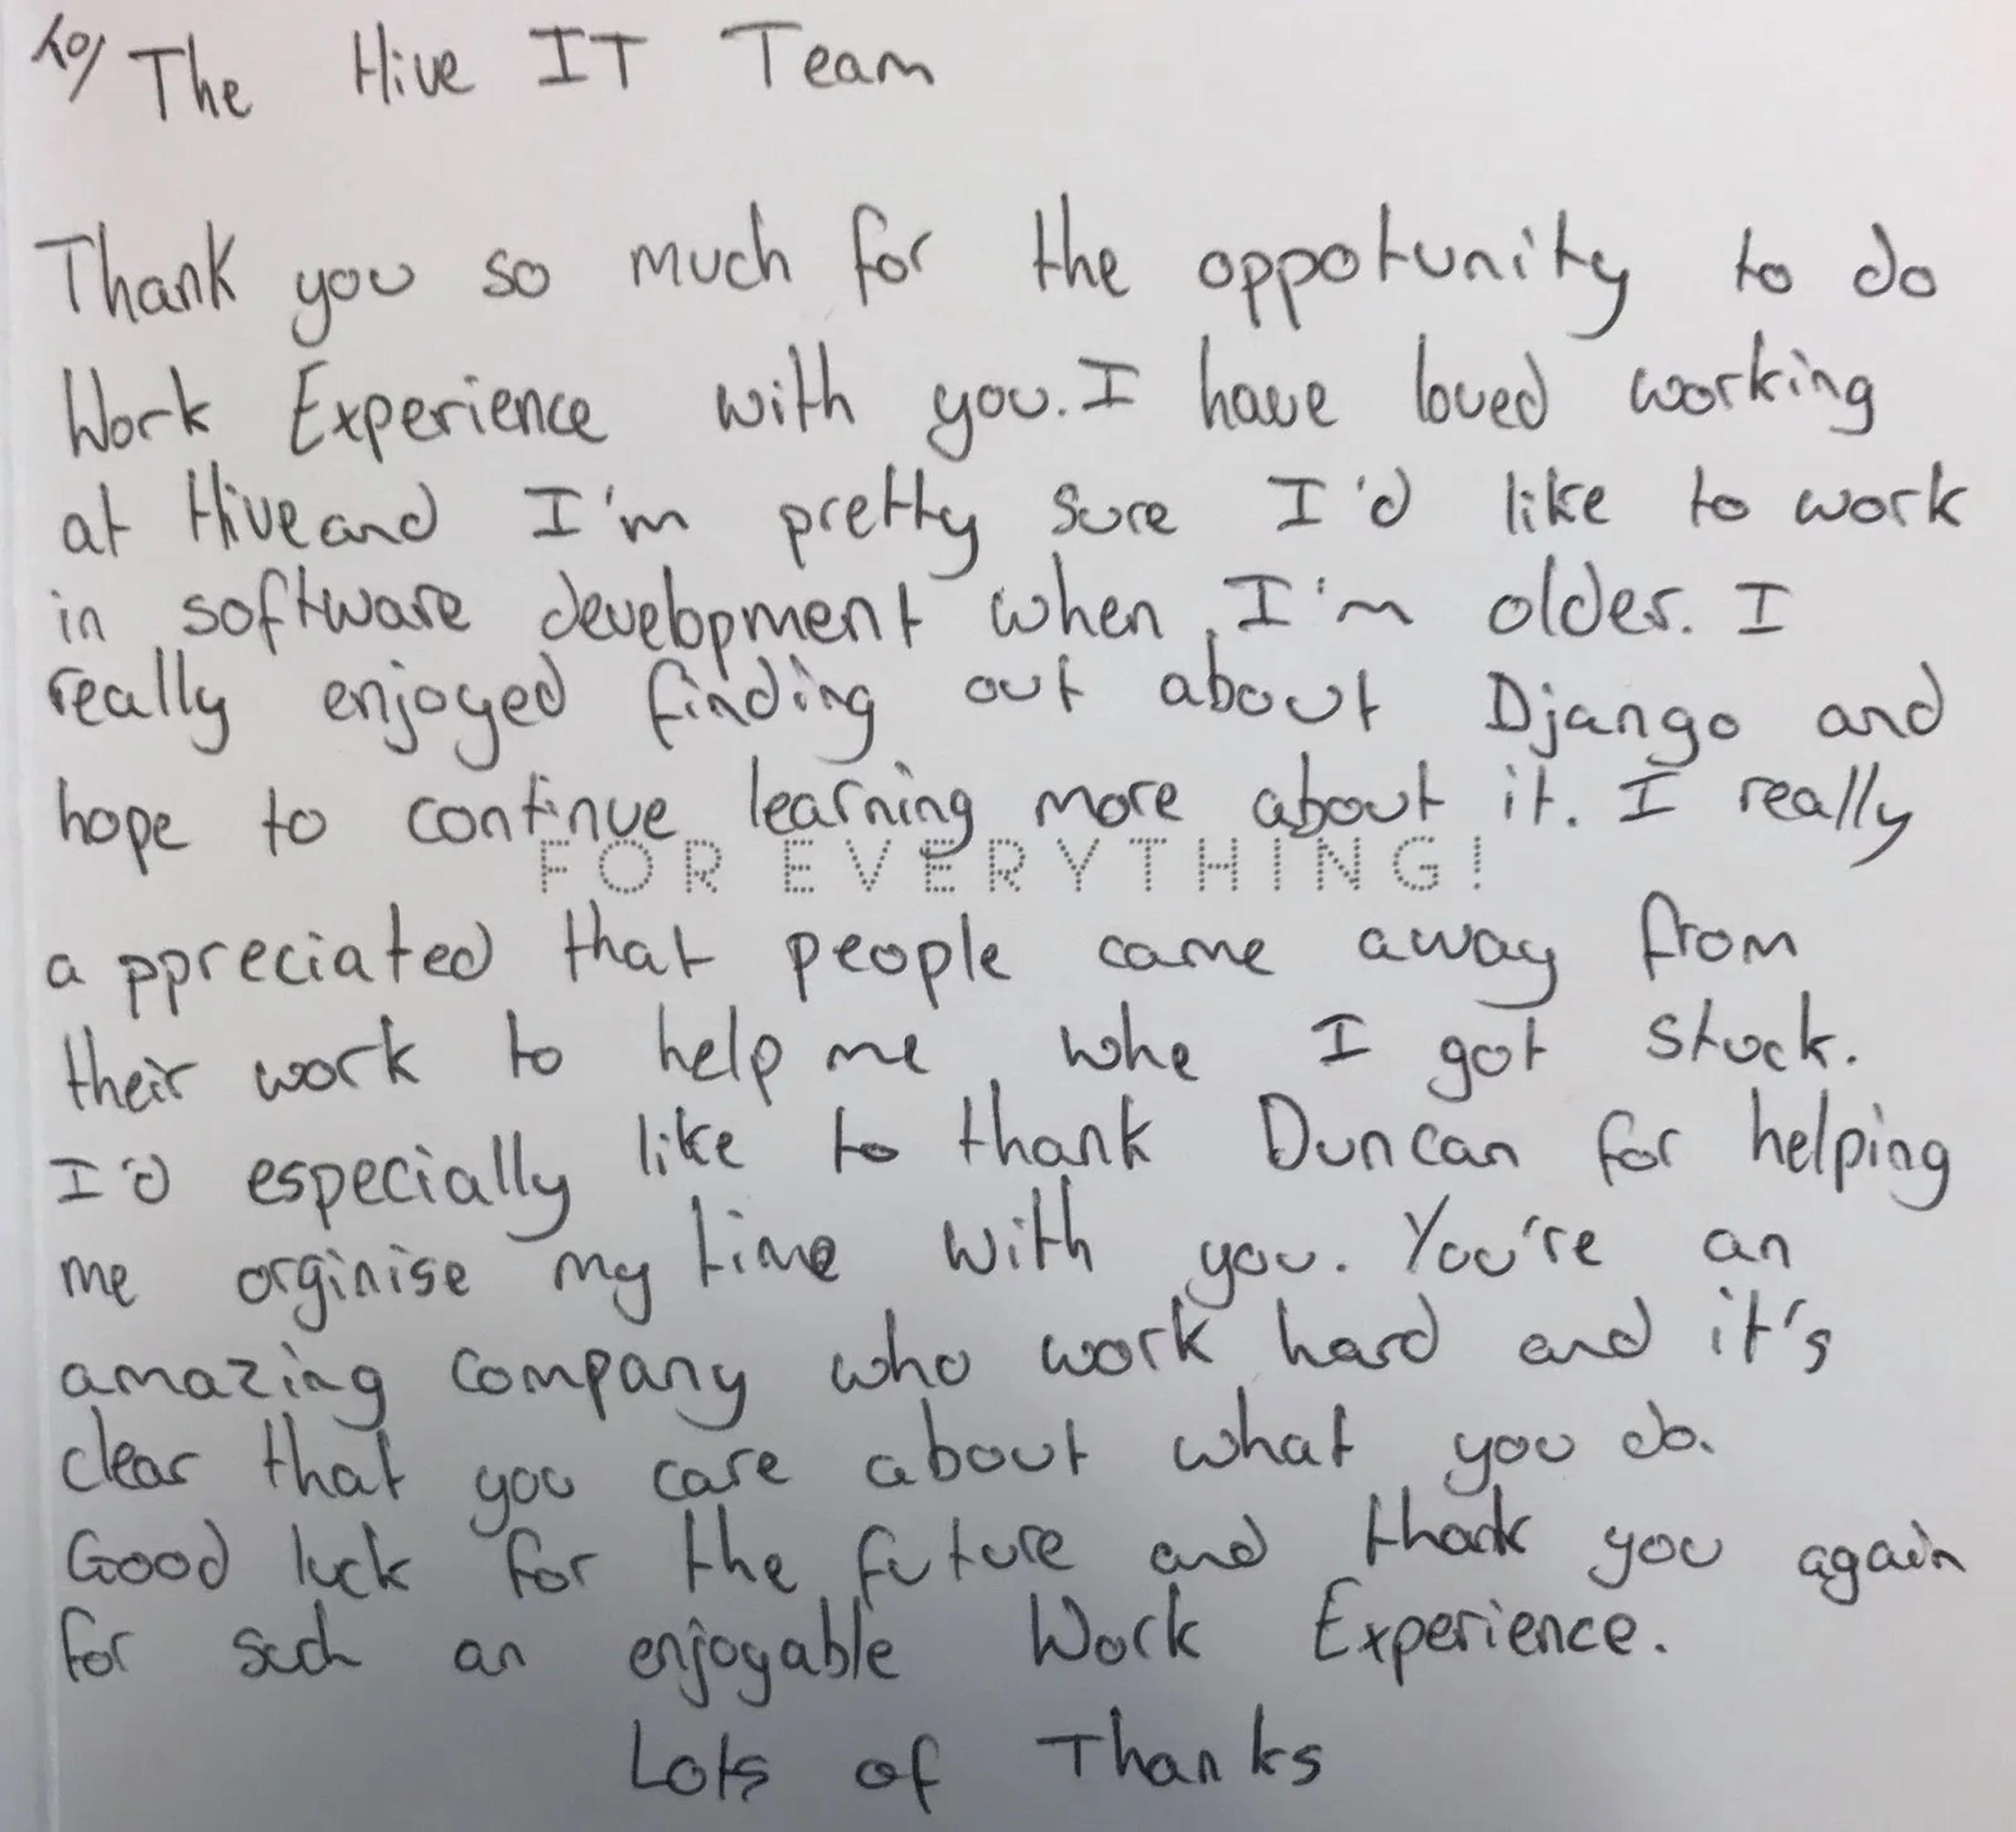 to/ The Hive IT Team
Thank you so much for the oppotunity to do
Work Experience with you. I have loved working
at Hive and I'm pretty sure I'd like to work
in software development when I'm older. I
really enjoyed finding out about Django and
hope to continue learning more about it. I really
FOR EVERYTHING!
appreciated that people came away from
their work to help me whe I got stuck.
I'd especially like to thank Duncan for helping
me orginise my time with you. You're an
amazing company who work hard and it's
clear that you care about what you do.
Good luck for the future and thank you again
for such an enjoyable Work Experience.
Lots of Thanks